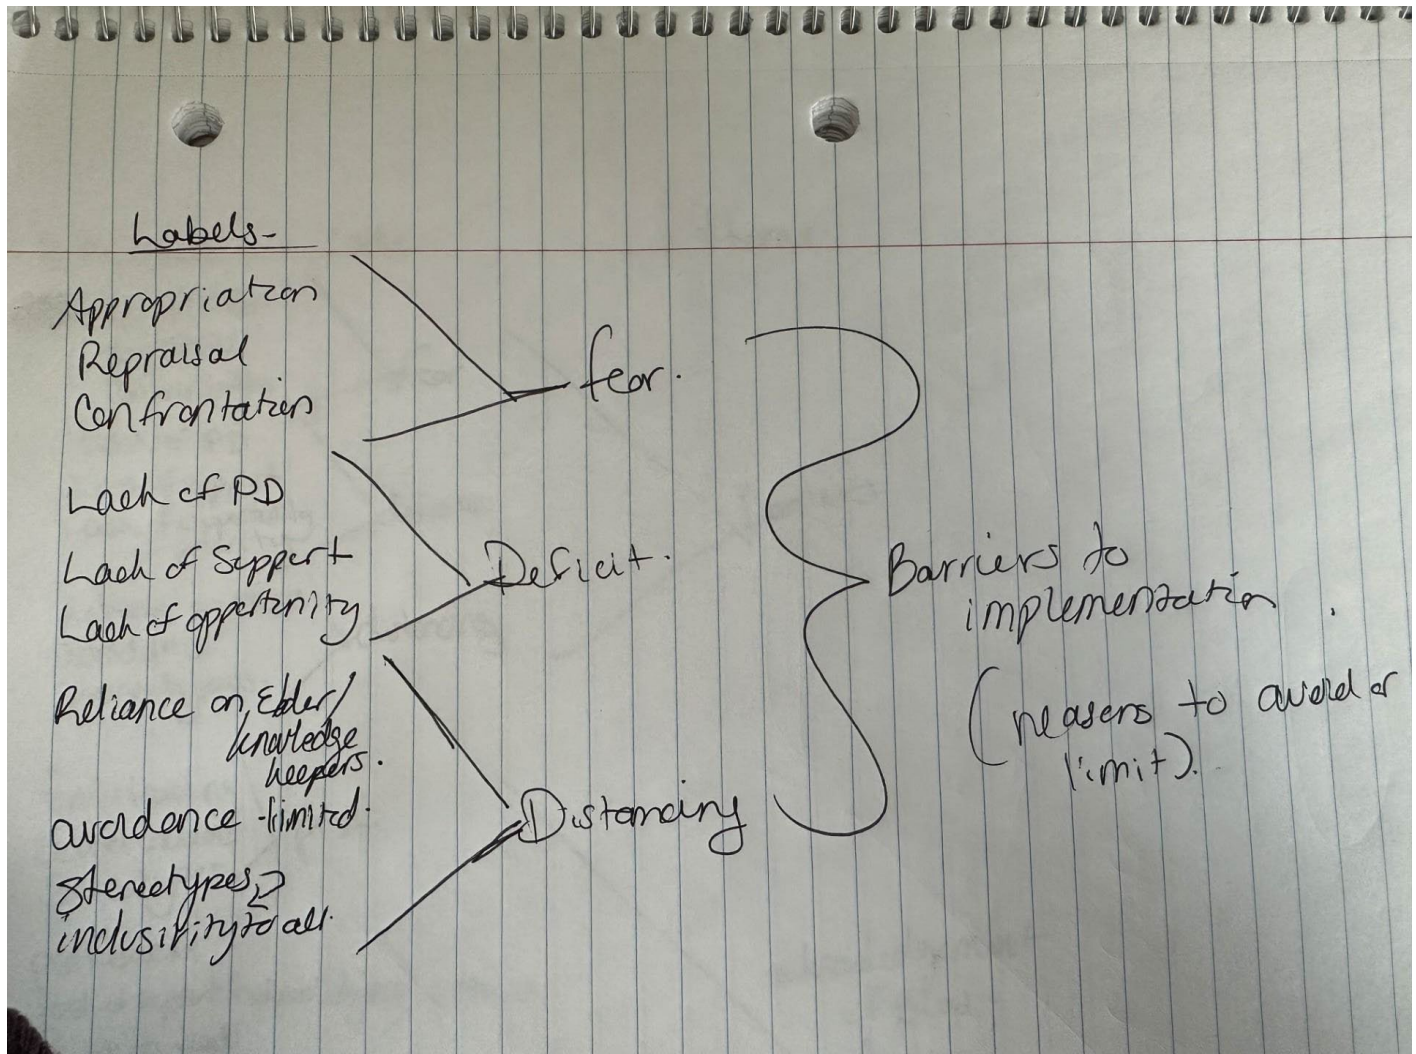 Labels-
Appropriation
Repraisal
Confrontation
fear.
Lack of PD
Lack of Support
Lack of oppertunity
Deficit.
Reliance on Elder/
knowledge
keepers.
avoidence -limited.
Stereotypes
inclusivity to all.
Distancing
Barriers to
implementation.
(reasons to avoid or
limit).